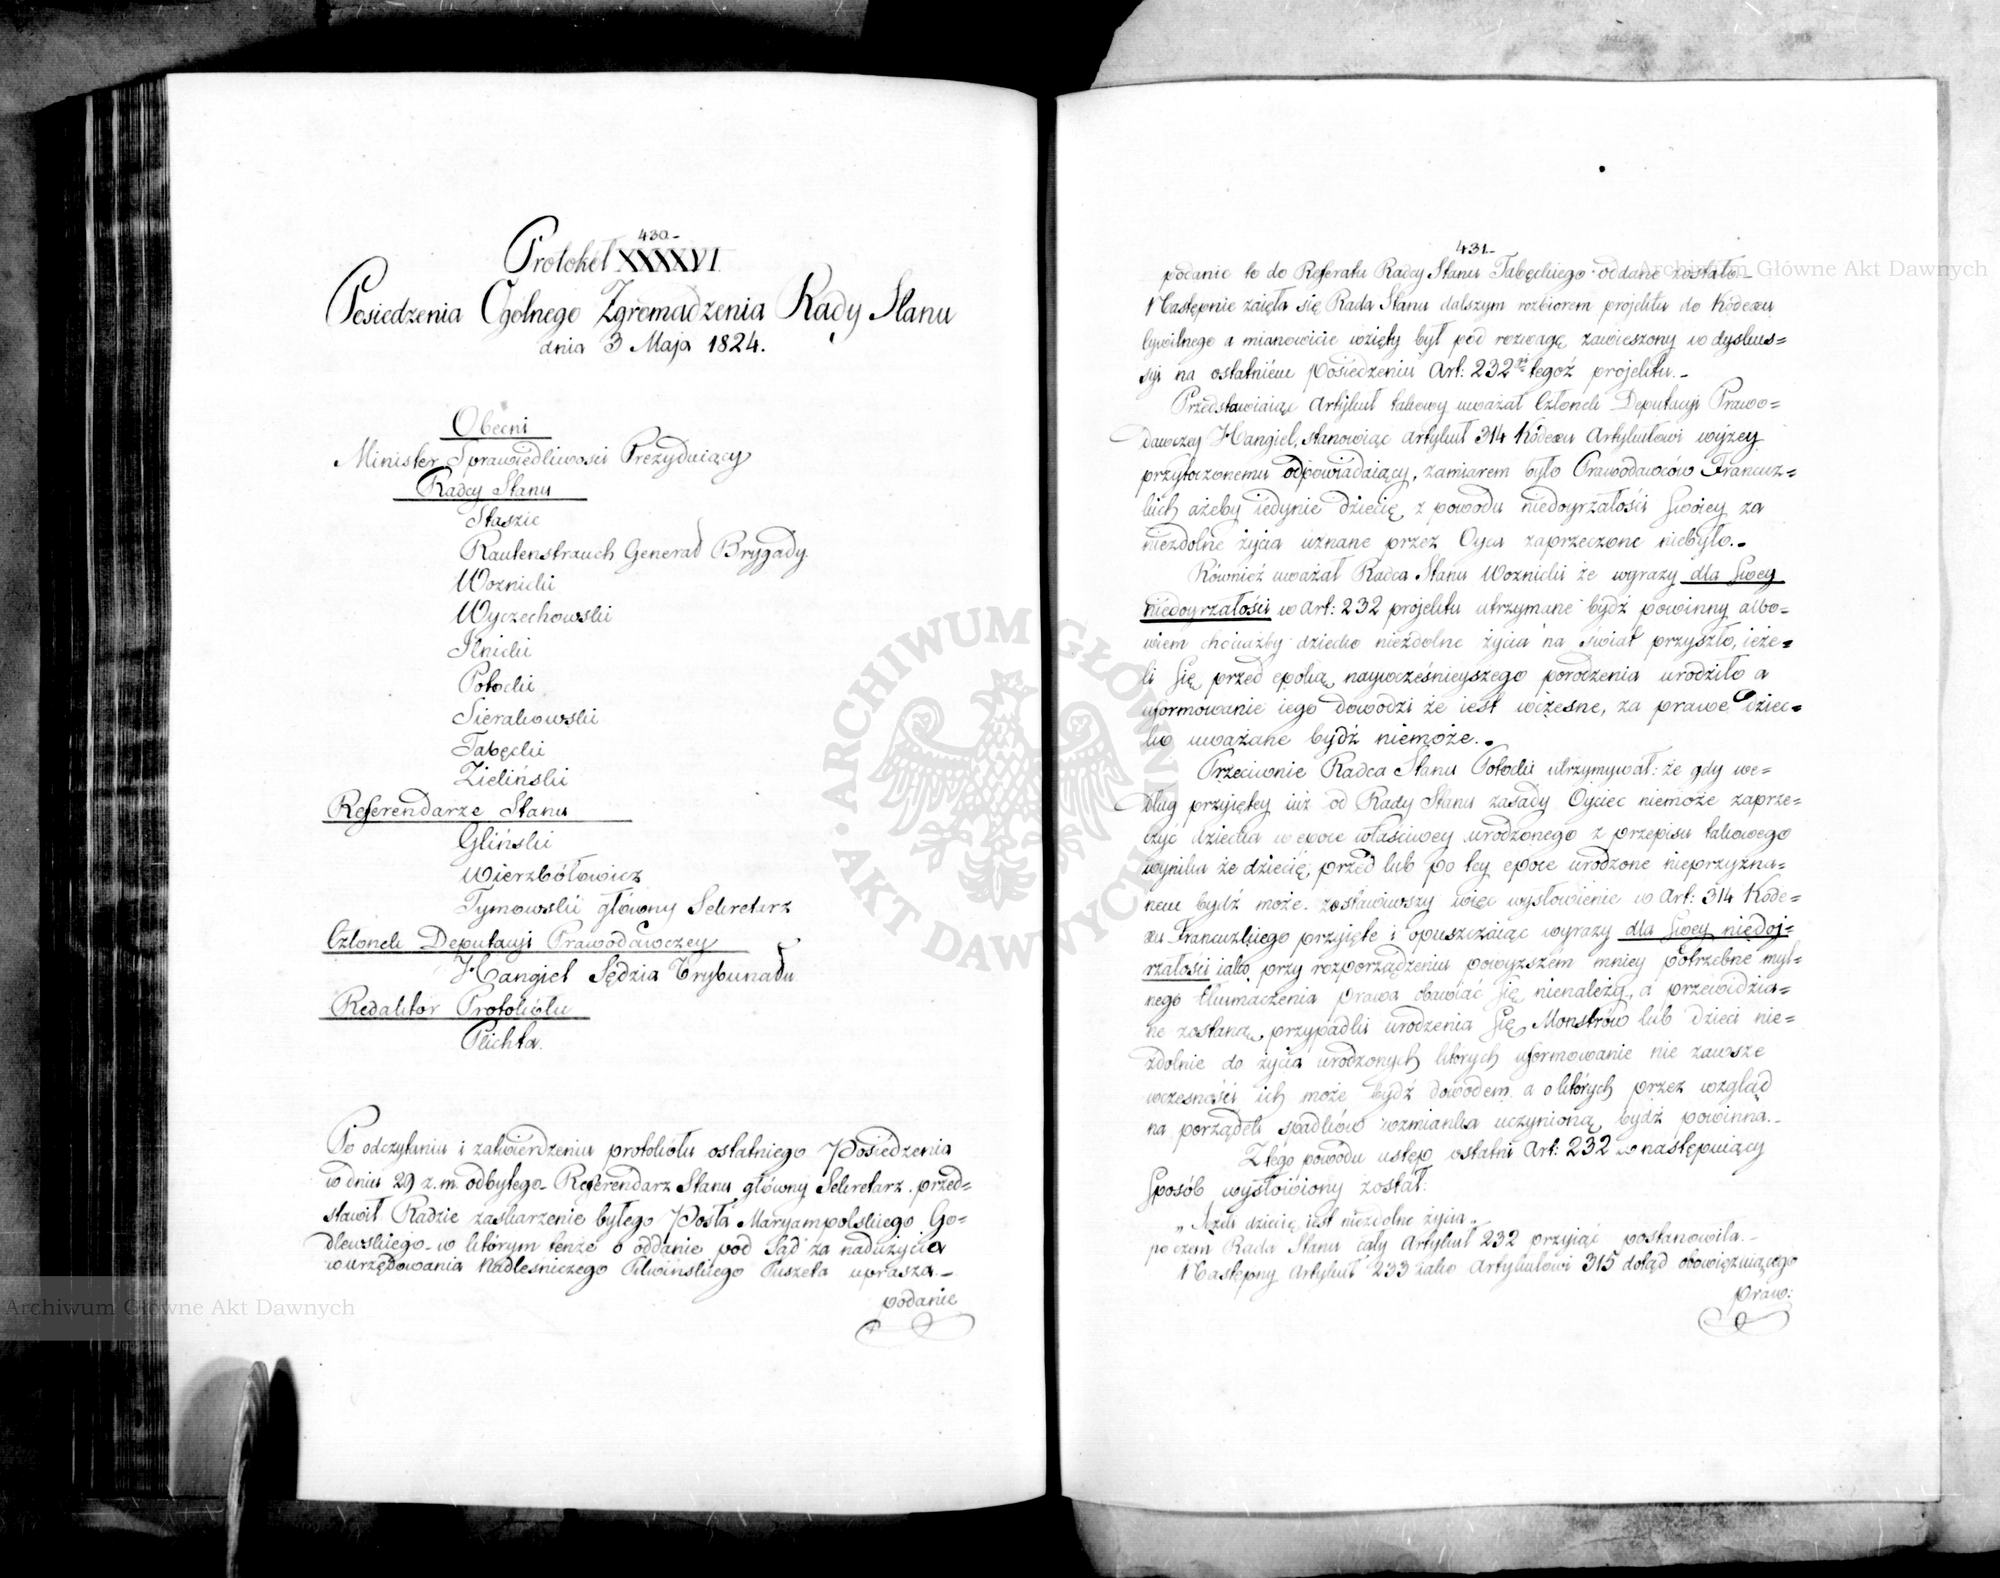 430.
Protokół XXXXVI
Posiedzenia Ogólnego Zgromadzenia Rady Stanu
dnia 3 Maja 1824.
Obecni
Minister Sprawiedliwości Prezyduiący
Radcy Stanu
Staszic
Rautenstrauch Generał Brygady
Woznicki
Wyczechowski
Ilnicki
Potocki
Sierakowski
Tabęcki
Zieliński
Referendarze Stanu
Gliński
Wierzbółowicz
Tymowski główny Sekretarz
Członek Deputacyi Prawodawczey
Hangiel Sędzia Trybunału
Redaktor Protokółu
Plichta.
Po odczytaniu i zatwierdzeniu protokółu ostatniego Posiedzenia
w dniu 29 z. m. odbytego. Referendarz Stanu główny Sekretarz przed=
stawił Radzie zaskarzenie byłego Posła Maryampolskiego Go=
dlewskiego w którym tenże o oddanie pod Sąd za nadużycia
w urzędowaniu Nadleśniczego Puszeta uprasza
podanie
431.
podanie to do Referatu Radcy Stanu Tabęckiego oddane zostało
Następnie zaięła się Rada Stanu dalszym rozbiorem projektu do Kodexu
Cywilnego a mianowicie wzięty był pod rozwagę zawieszony w dyskus=
syi na ostatniém Posiedzeniu Art: 232 tegoż projektu.
Przedstawiaiąc Artykuł takowy uważał Członek Deputacyi Prawo=
dawczey Hangiel, stanowiąc artykuł 314 Kodexu Artykułowi wyżey
przytoczonemu odpowiadaiący, zamiarem było Prawodawców Francuz=
kich ażeby iedynie dziecię z powodu niedoyrzałości Swoiey za
niezdolne życia uznane przez Oyca zaprzeczone niebyło.
Równiéż uważał Radca Stanu Woznicki że wyrazy dla Swey
niedoyrzałości w Art: 232 projektu utrzymane bydź powinny albo=
wiem chociażby dziecko niezdolne życia na świat przyszło, ieże=
li się przed epoką naywcześnieyszego porodzenia urodziło a
uformowanie iego dowodzi że iest wczesne, za prawe dziec=
ko uważane bydź niemoże.
Przeciwnie Radca Stanu Potocki utrzymywał: że gdy we=
dług przyiętey iuż od Rady Stanu zasady Oyciec niemoże zaprze=
czyć dziecka w epoce właściwey urodzonego z przepisu takowego
wynika że dziecię, przed lub po tey epoce urodzone nieprzyzna=
nem bydź może. zostawiwszy więc wysłowienie w Art: 314 Kode=
xu Francuzkiego przyięte i opuszczaiąc wyrazy dla Swey niedoj=
rzałości iako przy rozporządzeniu powyzszem mniey potrzebne myl=
nego tłumaczenia prawa obawiać się nienależy, a przewidzia=
ne zostaną przypadki urodzenia się Monstrów lub Dzieci nie=
zdolnie do życia urodzonych których uformowanie nie zawsze
wczesności ich może bydź dowodem a o których przez wzgląd
na porządek spadków wzmianka uczynioną bydź powinna.
Z tego powodu ustęp ostatni Art: 232 w następuiący
Sposób wysłowiony został:
„Jeżeli dziecię iest niezdolne życia„
poczem Rada Stanu cały Artykuł 232 przyiąć postanowiła.
Następny Artykuł 233 iako Artykułowi 315 dotąd obowięzuiącego
praw:
Archiwum Główne Akt Dawnych
Archiwum Główne Akt Dawnych
ARCHIWUM GŁÓWNE AKT DAWNYCH